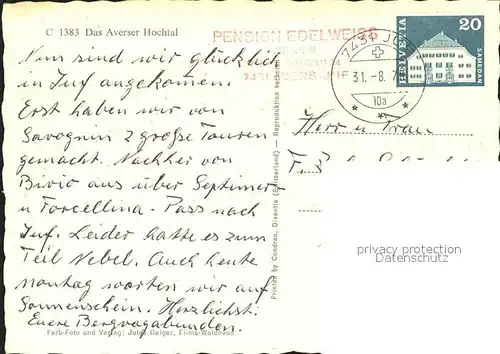 C 1383 Das Averser Hochtal
PENSION EDELWEISS
7431 AVERS-JUF
7431 JUF
31.-8.7
10a
HELVETIA
20
SAMEDAN
Nun sind wir glücklich
in Juf angekommen.
Erst haben wir von
Savognin 2 große Touren
gemacht. Nachher von
Bivio aus über Septimer-
u Forcellina-Pass nach
Juf. Leider hatte es zum
Teil Nebel. Auch heute
montag warten wir auf
Sonnenschein. Herzlichst:
Euere Bergvagabunden.
Herr u Frau
Printed by Condrau, Disentis (Switzerland) — Reproduktion verboten
privacy protection
Datenschutz
Farb-Foto und Verlag: Jules Geiger, Flims-Waldhaus